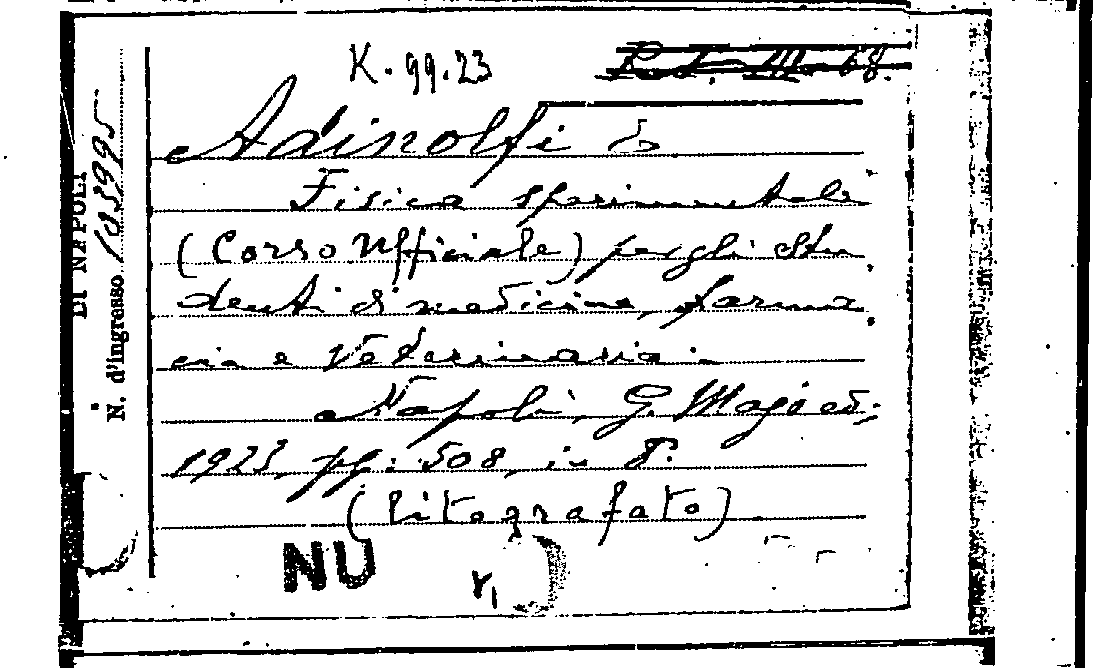 K. 99.23
Adinolfi E
Fisica sperimentale
(Corso Ufficiale) per gli stu
denti di medicina, farma
cia e Veterinaria.
Napoli, G. Majo ed.
1923, pp: 508, in 8°.
(litografato)
NU
DI NAPOLI
N. d'ingresso 1039995